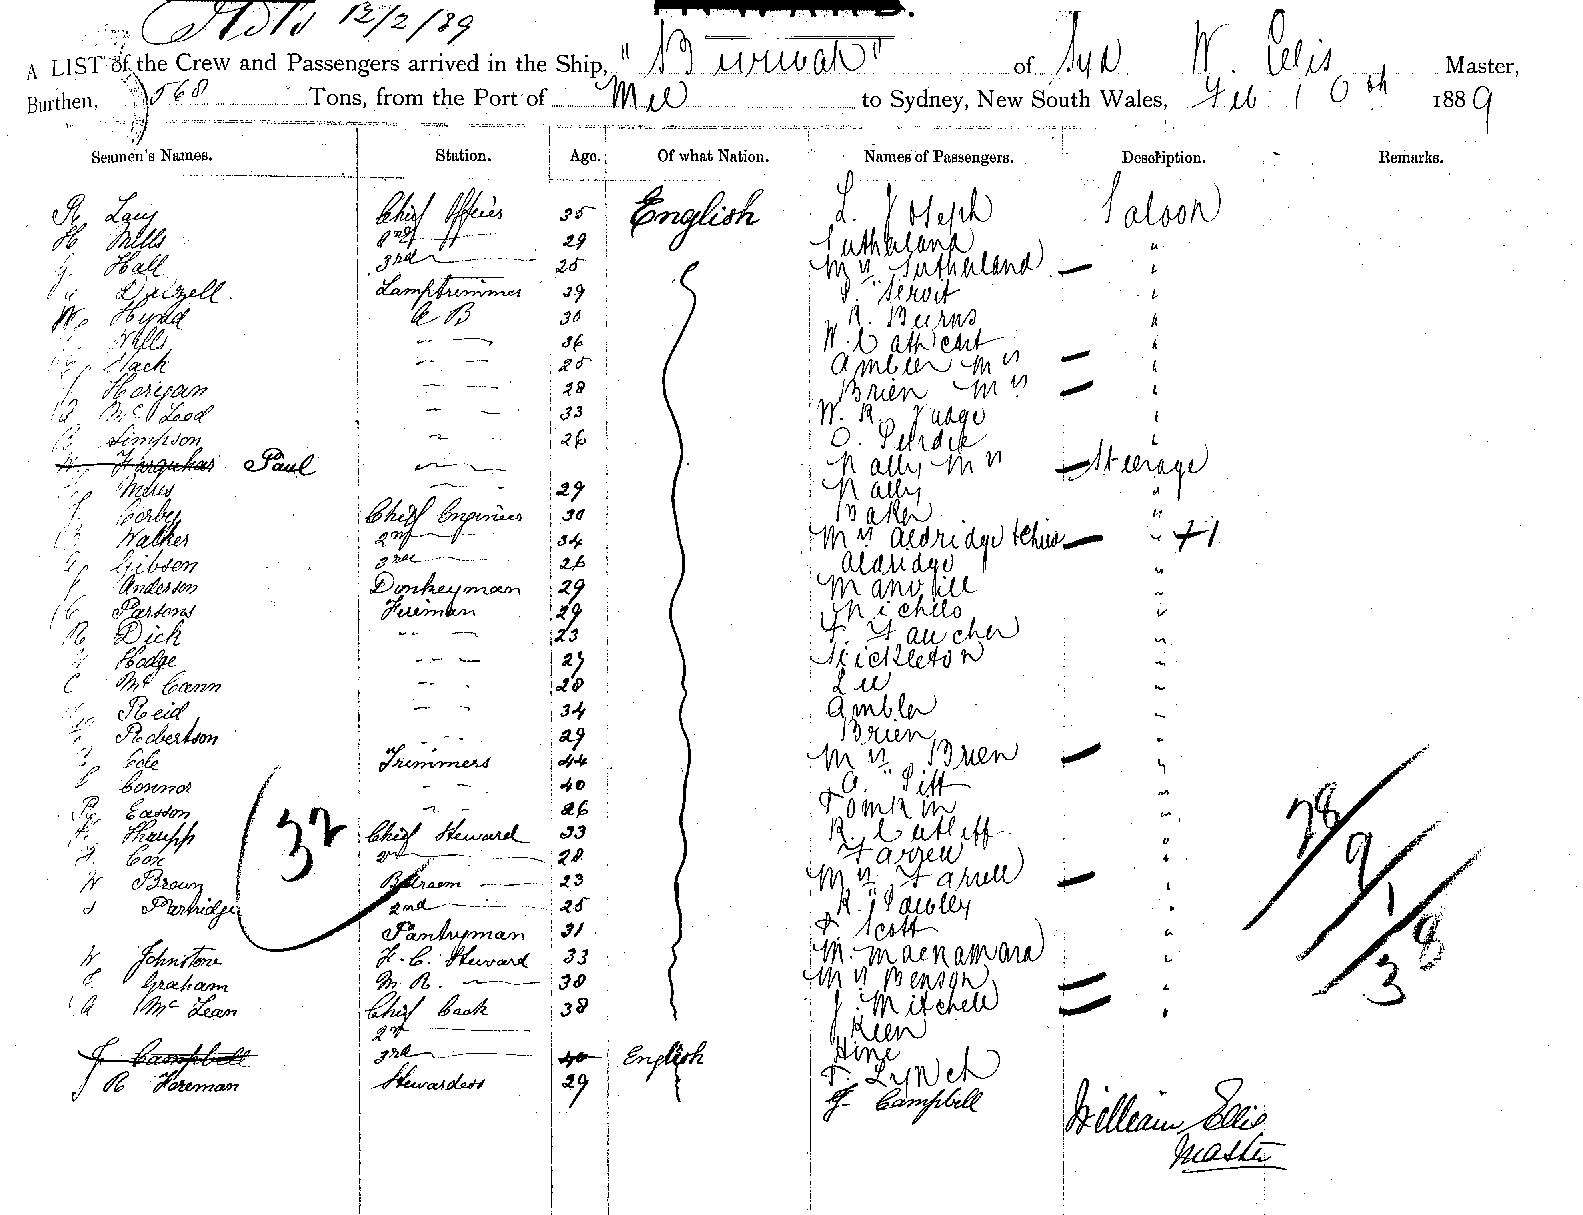 12/2/89
A LIST of the Crew and Passengers arrived in the Ship, "Burwah" of Syd W. Ellis Master,
Burthen, 568 Tons, from the Port of Mel to Sydney, New South Wales, Feb 10th 1889
Seamen's Names. Station. Age. Of what Nation. Names of Passengers. Description. Remarks.
R Chief Officer 35 English L. Joseph Saloon
H Mills 2nd 29 Sutherland "
Hall 3rd 25 Mrs Sutherland "
Dalzell. Lamptrimmer 39 "
W. Hynd A B 30 R. Burns "
Wills " " 36 W. Cathcart "
Slack " " 25 Ambler Mrs "
Horigan " " 28 Brien Mrs "
McLeod " " 33 W. R. Judge "
Simpson " 26 C. Purdie "
Farquhar Paul " " Nally Mrs Steerage
" " 29 Nally "
Corby Chief Engineer 30 Baker "
Walker 2nd 34 Mrs Aldridge & Chies " +1
Gibson 3rd 26 Aldridge "
Anderson Donkeyman 29 Manvill "
Parsons Fireman 29 Michelo "
R Dick " " 23 F. Faucher "
Hodge " " 27 Stickleton "
C McCann " " 28 Lee "
Reid " " 34 Ambler "
Robertson " " 29 Brien "
Cole Trimmers 44 Mrs Brien "
Connor " " 40 C. Pitt "
Easson " " 26 Tomkin "
Sharpp Chief Steward 33 R Cutliff "
Cox 2nd 28 Farrell "
W Brown Bedroom 23 Mrs Farrell "
J Partridge 2nd 25 R. Pawley "
Pantryman 31 F. Scott "
W Johnstone F. C. Steward 33 M. Macnamara "
Graham M R. 30 Mrs Benson "
A McLean Chief Cook 38 J. Mitchell "
2nd Keen
J. Campbell 3rd 40 English Hine
R Foreman Stewardess 29 F. Lynch
J. Campbell
32
28
9
1
38
William Ellis
Master